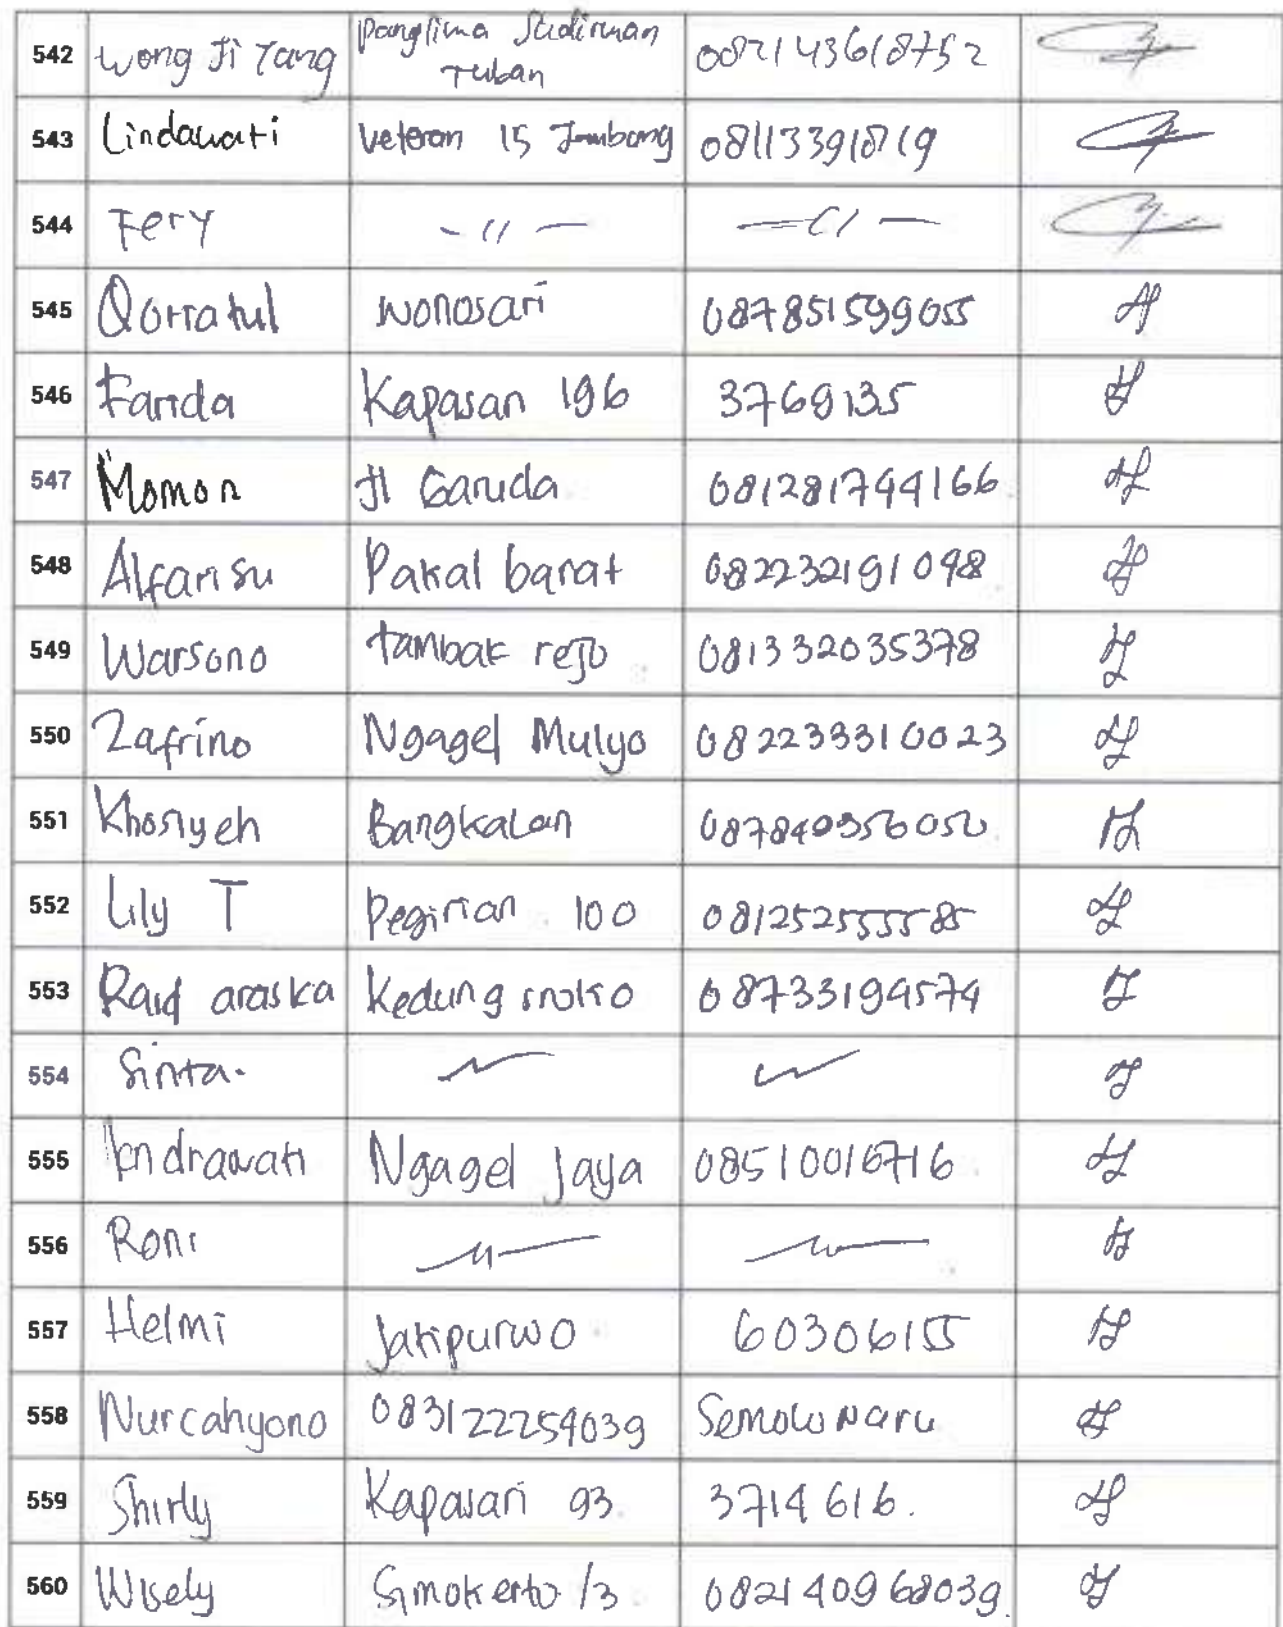 542 Wong Ji Yang Panglima Sudirman Tuban 082143618752
543 Lindawati Veteran 15 Jombang 08113391819
544 Fery - 11 - - 11 -
545 Qorratul Wonosari 087851599055
546 Farida Kapasan 196 3769135
547 Momon Jl Garuda 081281744166
548 Alfarisu Pakal barat 082232191098
549 Warsono tambak rejo 081332035378
550 Zafrino Ngagel Mulyo 082233310023
551 Khosiyeh Bangkalan 087840356050
552 Lily T Pegirian 100 081252555585
553 araska Kedung 08733199574
554 Sinta.
555 Hendrawati Ngagel Jaya 08510016716
556 Roni
557 Helmi Jatipurwo 60306155
558 Nurcahyono 083122259039 Semolowaru
559 Shirly Kapasari 93. 3714616.
560 Wisely Simokerto /3 082140968039.